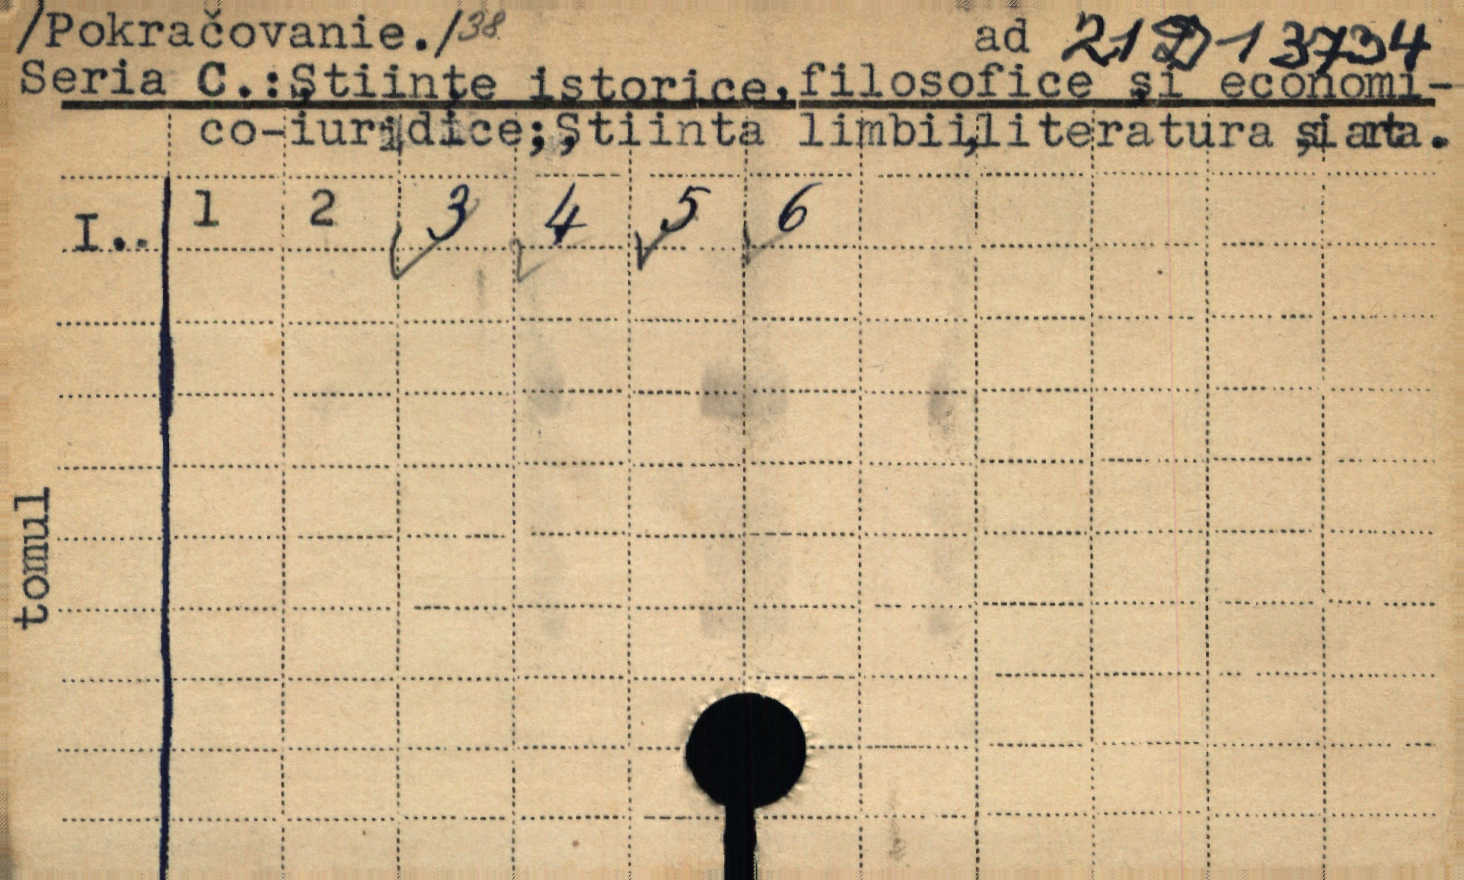 /Pokračovanie./38 ad 21 D 13734
Seria C.:Ştiinţe istorice,filosofice şi economi-
co-iuridice;Ştiinta limbii,literatura şi arta.
I.. 1 2 3 4 5 6
tomul